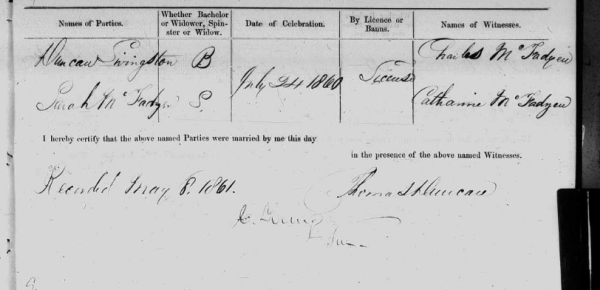 Names of Parties. Whether Bachelor or Widower, Spinster or Widow. Date of Celebration. By Licence or Banns. Names of Witnesses.
Duncan Livingston B Charles McFadyen
July 24 1860 License
Sarah McFadyen S. Catharine McFadyen
I hereby certify that the above named Parties were married by me this day
in the presence of the above named Witnesses.
Recorded May 8. 1861. Thomas Duncan